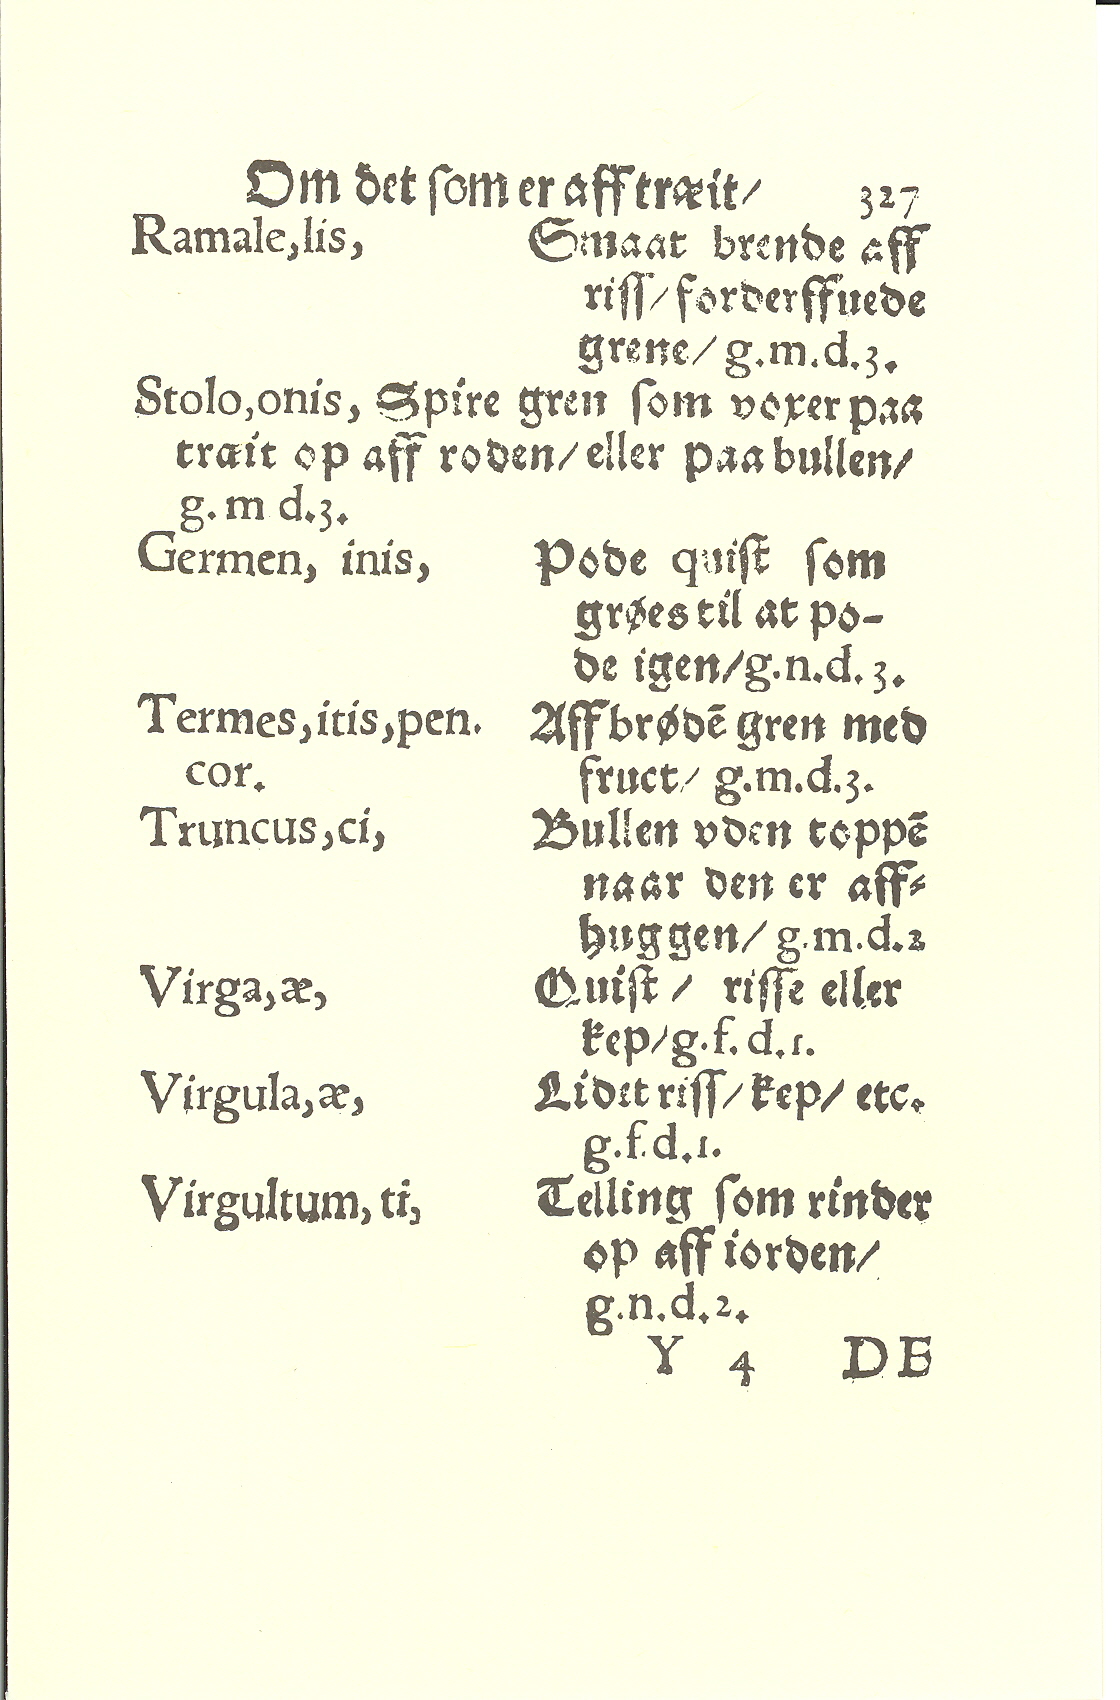 Om det som er aff træit/ 327
Ramale,lis, Smaat brende aff
riss/ forderffuede
grene/ g.m.d.3.
Stolo,onis, Spire gren som voxer paa
træit op aff roden/ eller paa bullen/
g. m d.3.
Germen, inis, Pode quist som
grøes til at po-
de igen/g.n.d. 3.
Termes,itis,pen. Affbrødē gren med
cor. fruct/ g.m.d.3.
Truncus,ci, Bullen vden toppē
naar den er aff-
huggen/ g.m.d.2
Virga,æ, Quist / risse eller
kep/g.f.d.1.
Virgula,æ, Lidet riss/ kep/ etc.
g.f.d.1.
Virgultum, ti, Telling som rinder
op aff iorden/
g.n.d.2.
Y 4 DE